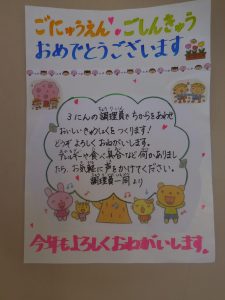 ごにゅうえん ごしんきゅう
おめでとうございます
3にんの調理員でちからをあわせ
おいしいきゅうしょくをつくります!
どうぞよろしくおねがいします。
アレルギーや食べ具合など何かありまし
たら、お気軽に声をかけてください。
調理員一同より
今年もよろしくおねがいします。